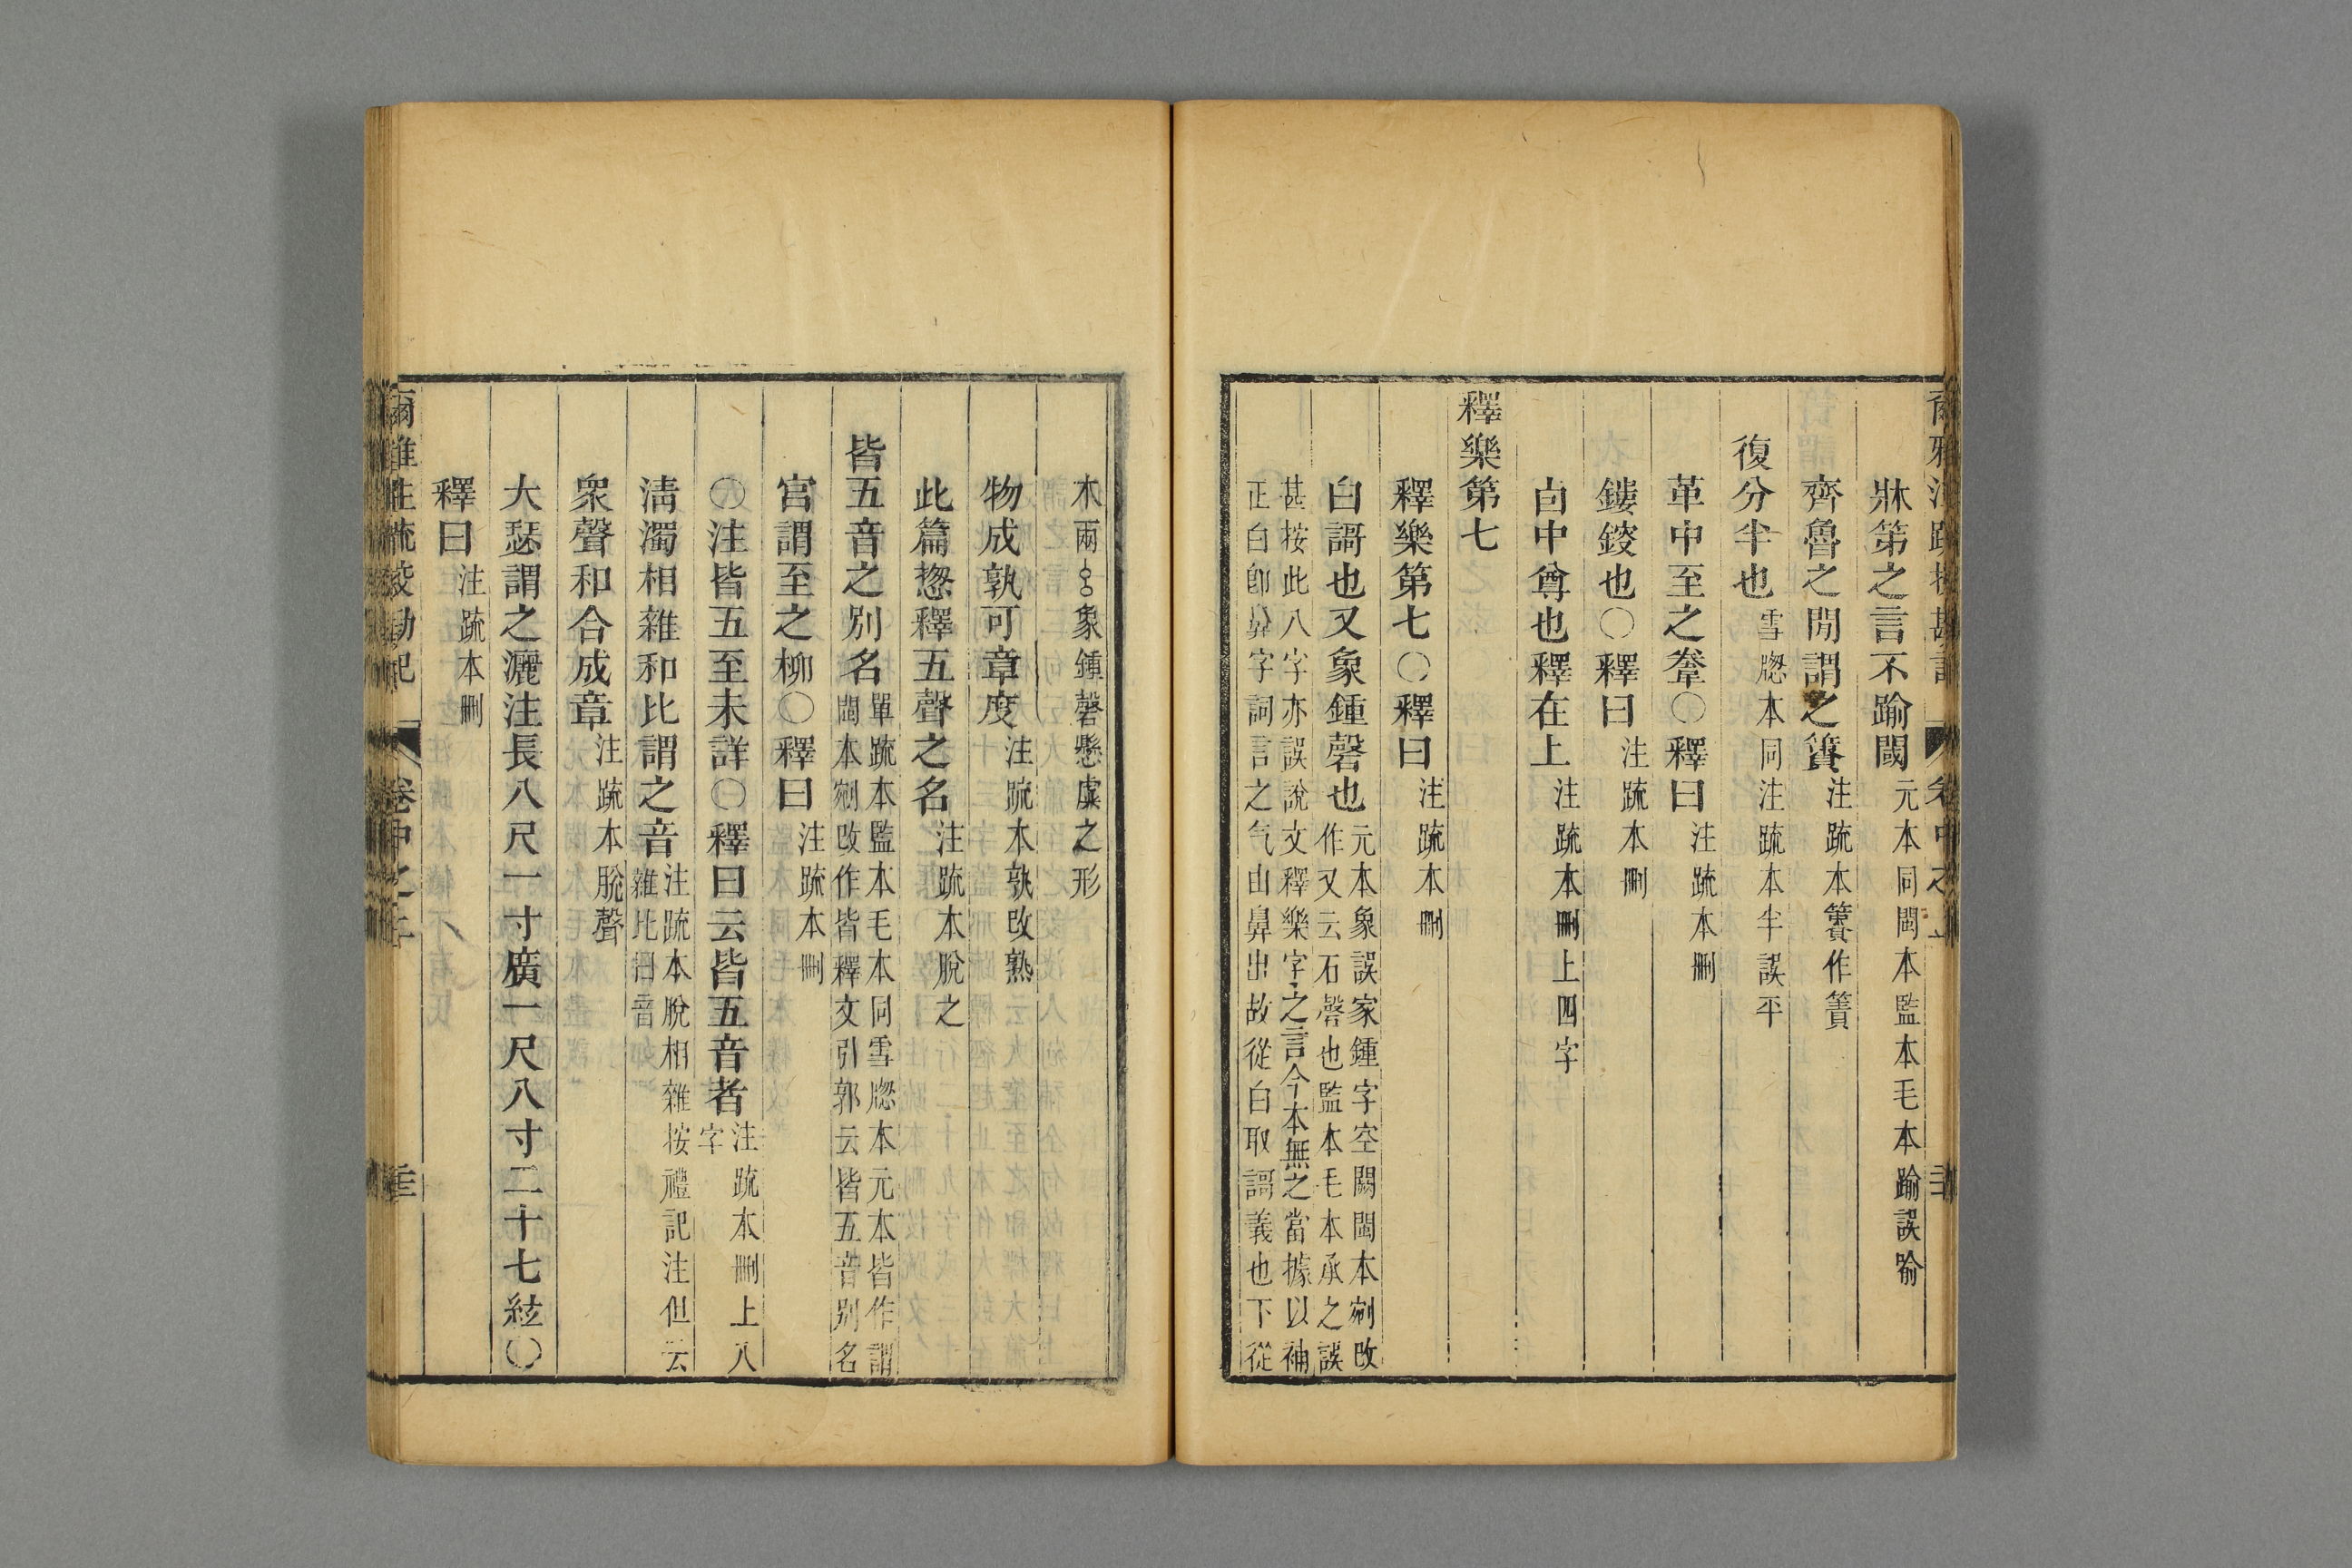 牀第之言不踰閾元本同閩本監本毛本踰誤喻
齊魯之閒謂之簀注疏本簀作簣
復分半也雪牎本同注疏本半誤平
革中至之辇〇釋曰注疏本刪
鏤錂也〇釋曰注疏本刪
卣中尊也釋在上注疏本刪上四字
釋樂第七
釋樂第七〇釋曰注疏本刪
白謌也又象鍾磬也元本象誤家鍾字空闕閩本剜改
作又云石磬也監本毛本承之誤
甚按此八字亦誤說文釋樂字之言今本無之當據以補
正白卽鼻字詞言之气由鼻出故從白取謌義也下從
木兩象鍾磬懸虡之形
物成孰可章度注疏本孰改熟
此篇揔釋五聲之名注疏本脫之
皆五音之別名單疏本監本毛本同雪牎本元本皆作謂
閩本剜改作皆釋文引郭云皆五音別名
宮謂至之柳〇釋曰注疏本刪
〇注皆五至未詳〇釋曰云皆五音者注疏本刪上八
字
淸濁相雜和比謂之音注疏本脫相雜按禮記注但云
雜比曰音
衆聲和合成章注疏本脫聲
大瑟謂之灑注長八尺一寸廣一尺八寸二十七絃〇
釋曰注疏本刪
爾雅注疏挍勘記 卷中之上